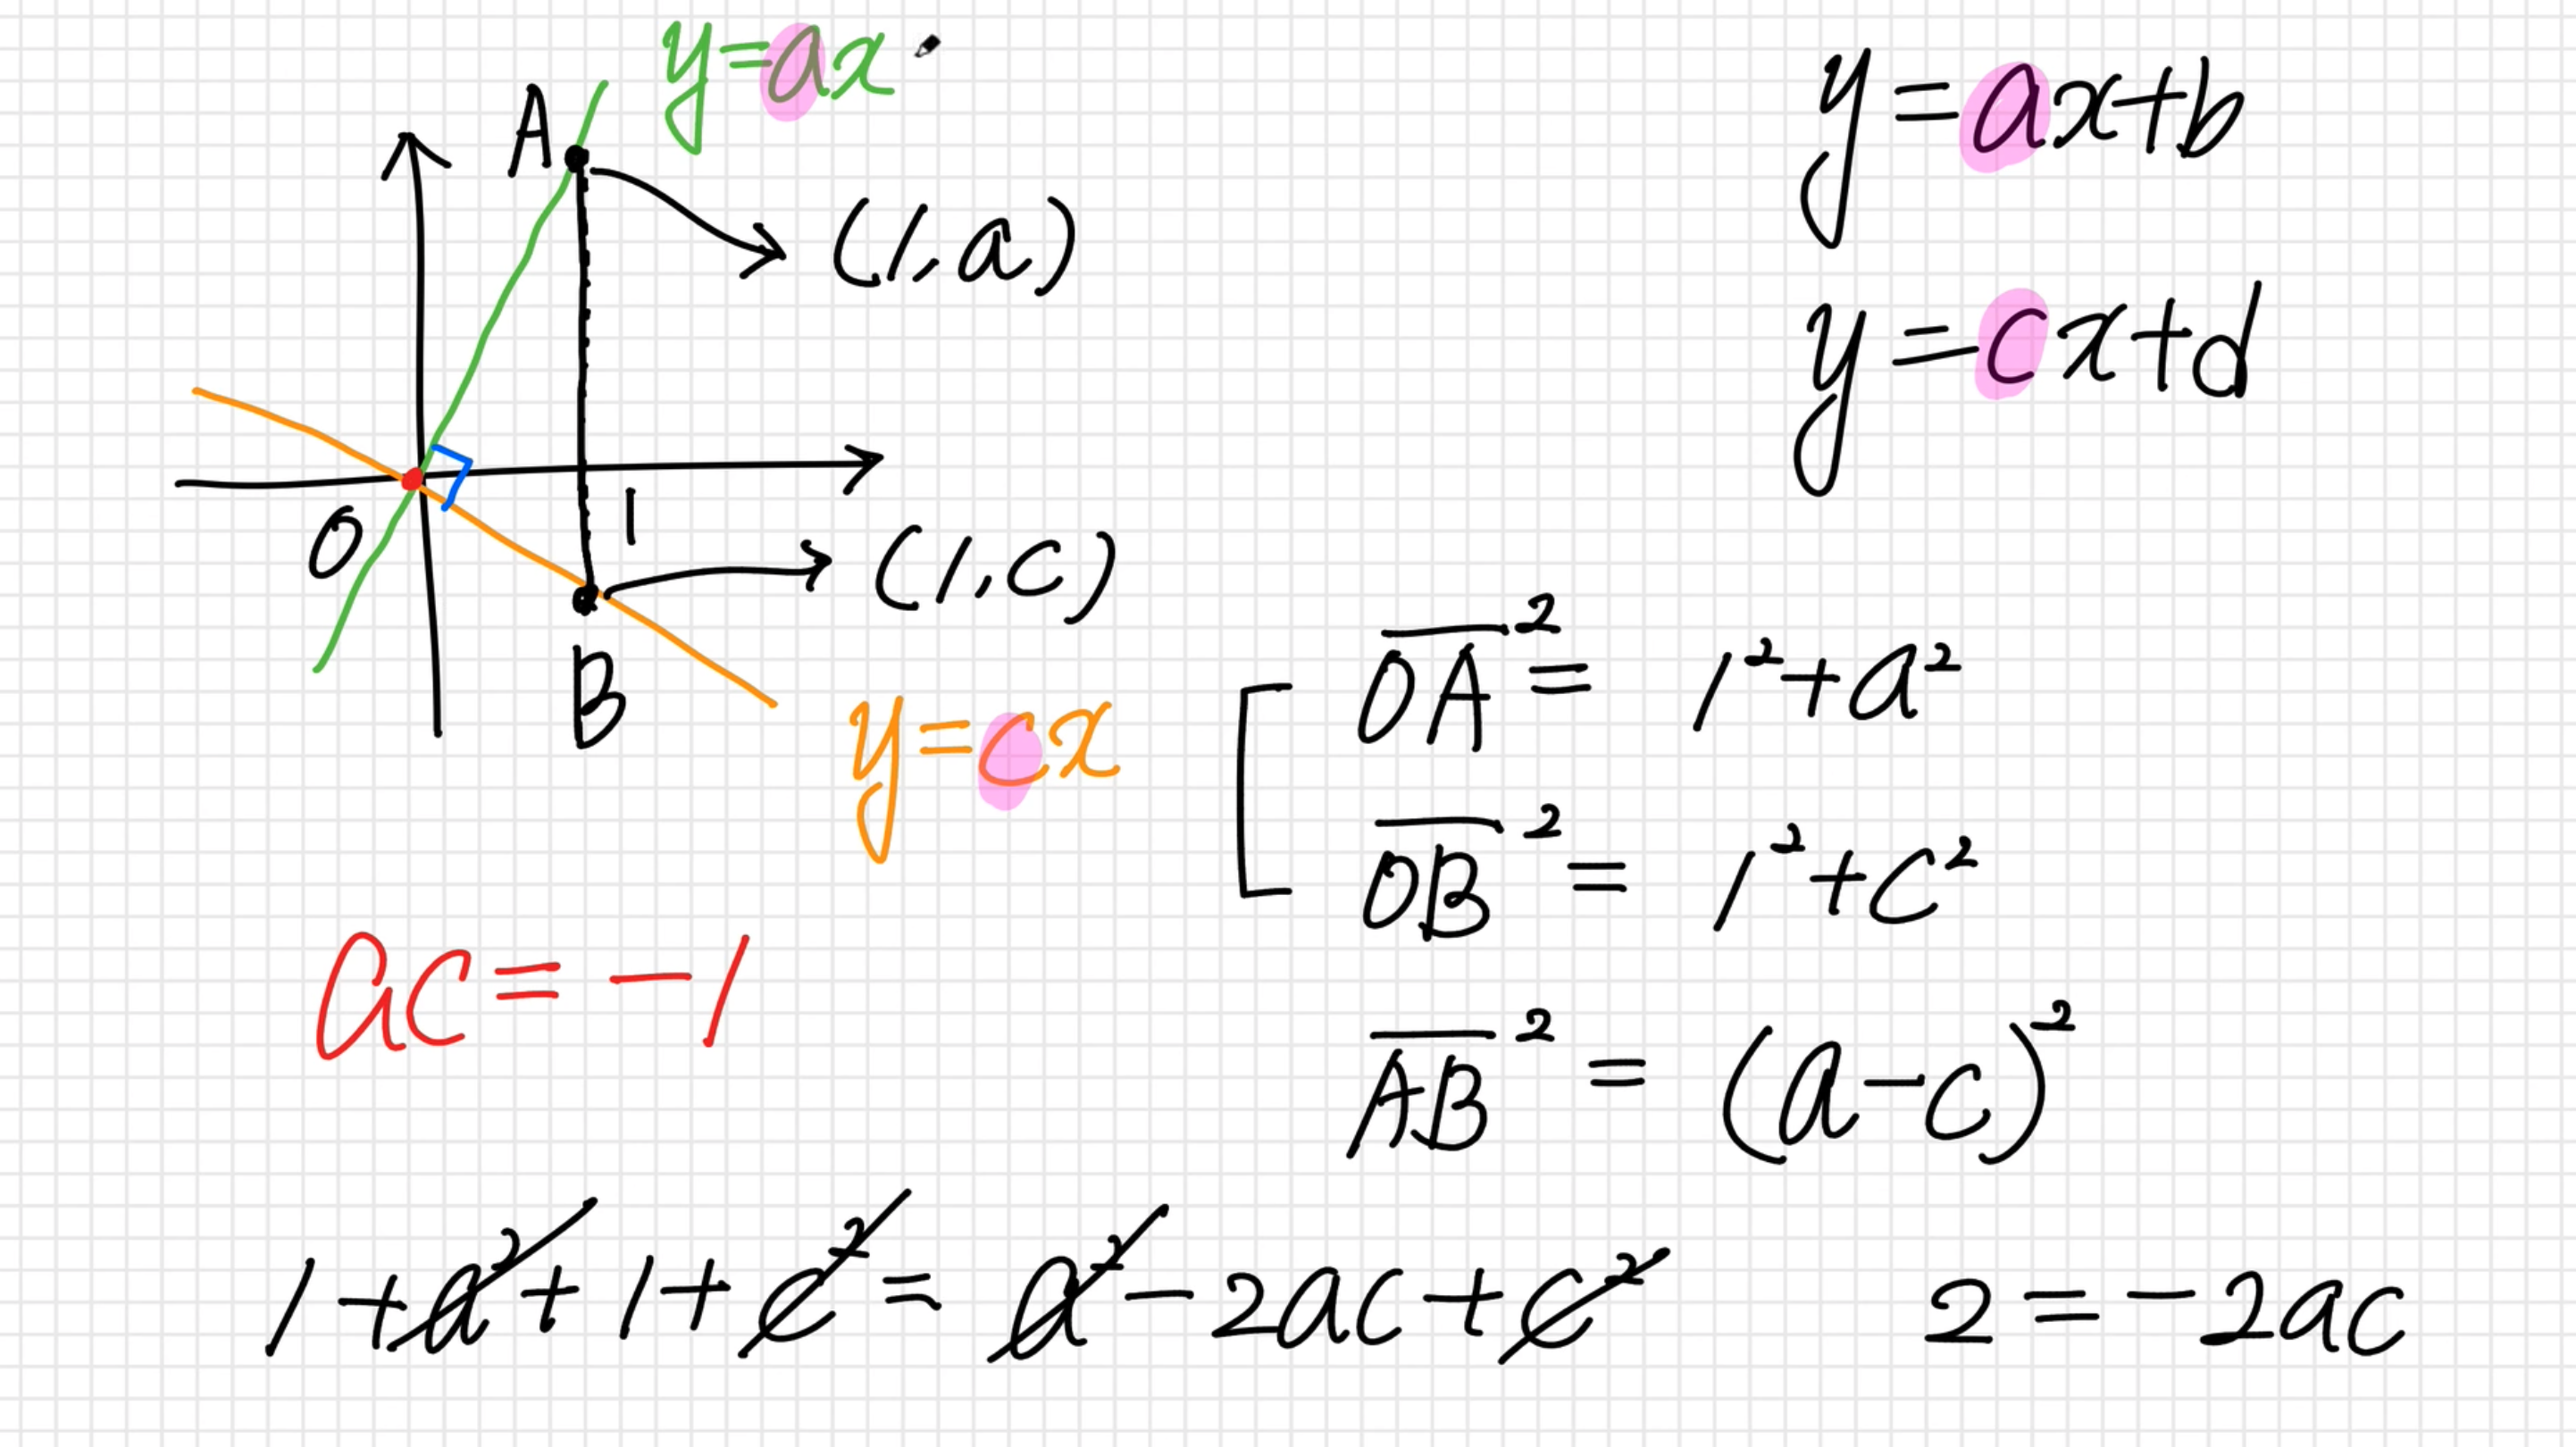 y=ax
A
(1,a)
O
1
(1,c)
B
y=cx
ac=-1
y=ax+b
y=cx+d
OA²= 1²+a²
OB²= 1²+c²
AB²= (a-c)²
1+a²+1+c²=a²-2ac+c²
2=-2ac